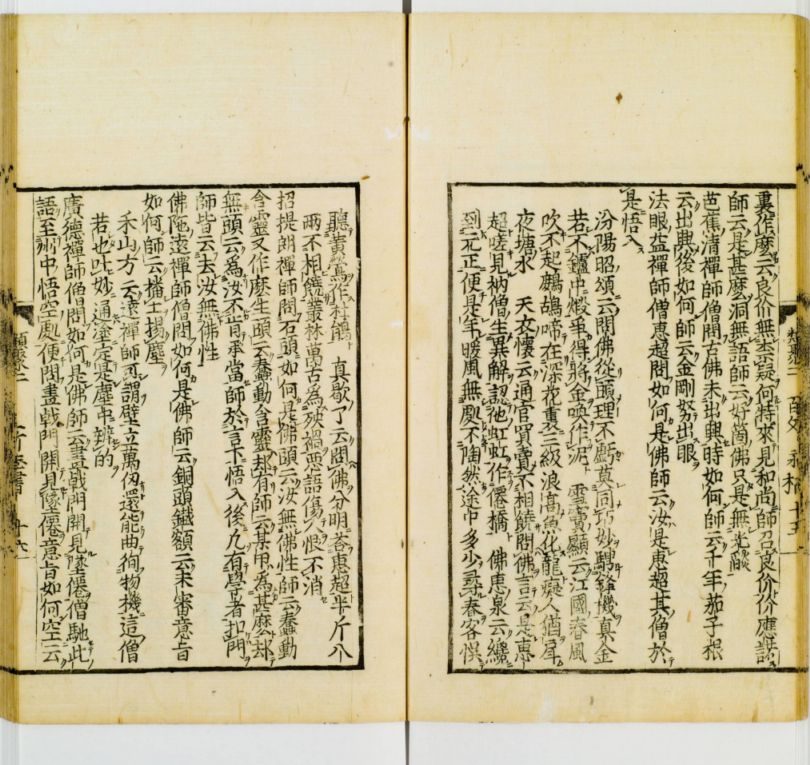 裏作麼云良价無柰疑何特來見和尚師召良价价應諾
師云是甚麼洞無語師云好箇佛只是無光𦦨
芭蕉清禪師僧問古佛未出興時如何師云千年茄子根
云出興後如何師云金剛努出眼
法眼益禪師僧惠超問如何是佛師云汝是惠超其僧於
是悟入
汾陽昭頌云問佛從頭理不虧莫同巧妙騁鋒機真金
若不鑪中煅爭得將金喚作泥 雪竇顯云江國春風
吹不起鷓鴣啼在深花裏三級浪高魚化龍癡人猶戽
夜塘水 天衣懷云通官買賣不相饒問佛言云是惠
超嗟見衲僧生異解認他虹作僊橋 佛惠泉云纔
到元正便是年暖風無處不陶然途中多少尋春客悞
聽黄鶯作杜鵑 真歇了云問佛分明荅惠超半斤八
兩不相饒叢林萬古為殃禍惡語傷人恨不消
招提朗禪師問石頭如何是佛頭云汝無佛性師云蠢動
含靈又作麼生頭云蠢動含靈却有師云某甲為甚麼却
無頭云為汝不肯承當師於言下悟入後凡有學者扣門
師皆云去汝無佛性
佛陁遠禪師僧問如何是佛師云銅頭鐵額云未審意旨
如何師云簸土揚塵
禾山方云遠禪師可謂壁立萬仭還能曲徇物機這僧
若也吐妙通塗定是塵中辨的
廣德禪師僧問如何是佛師云畫戟門開見墮僊僧馳此
語至中悟空處便問畫戟門開見墮僊意旨如何空云